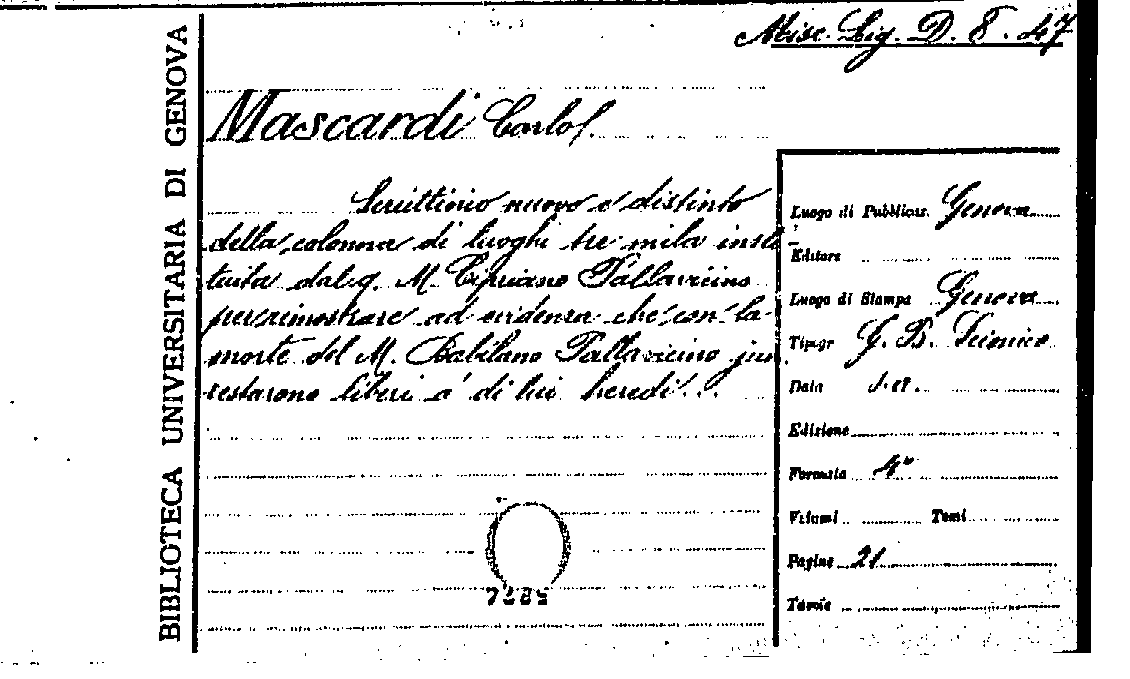 Misc. Lig. D. 8. 47
BIBLIOTECA UNIVERSITARIA DI GENOVA
Mascardi Carlo
Scruttinio nuovo e distinto
della colonna di luoghi tre mila insti-
tuita dal q. M. Cipriano Pallavicino
per rimostrare ad evidenza che con la
morte del M. Babilano Pallavicino jun.
restarono liberi a' di lui heredi...
Luogo di Pubblicaz. Genova
Editore
Luogo di Stampa Genova
Tipogr G. B. Scionico
Data s.a.
Edizione
Formato 4°
Volumi Tomi
Pagine 21
Tavole